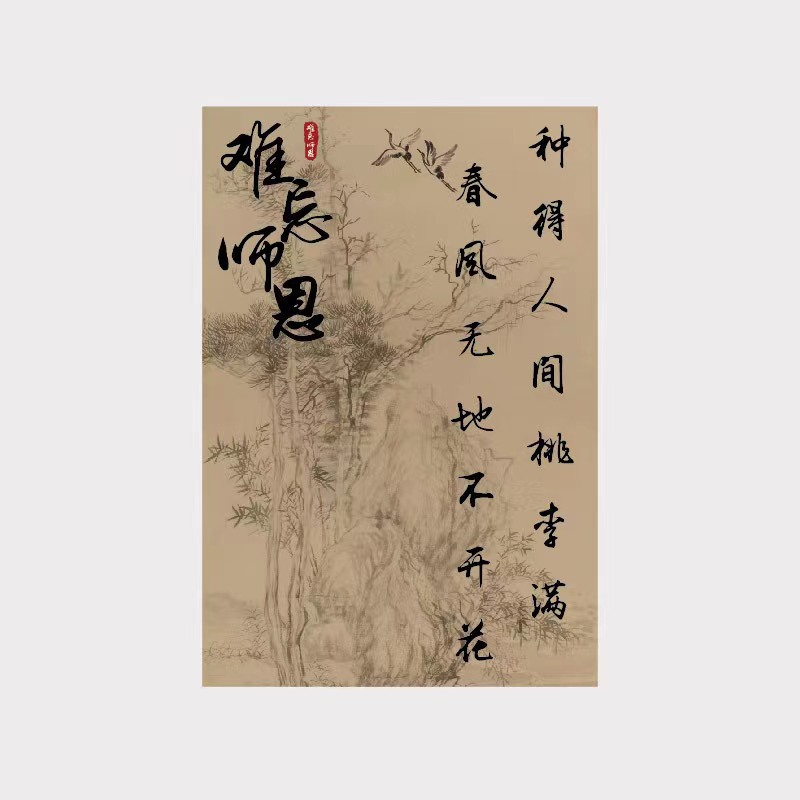 种得人间桃李满
春风无地不开花
难忘师恩
难忘师恩